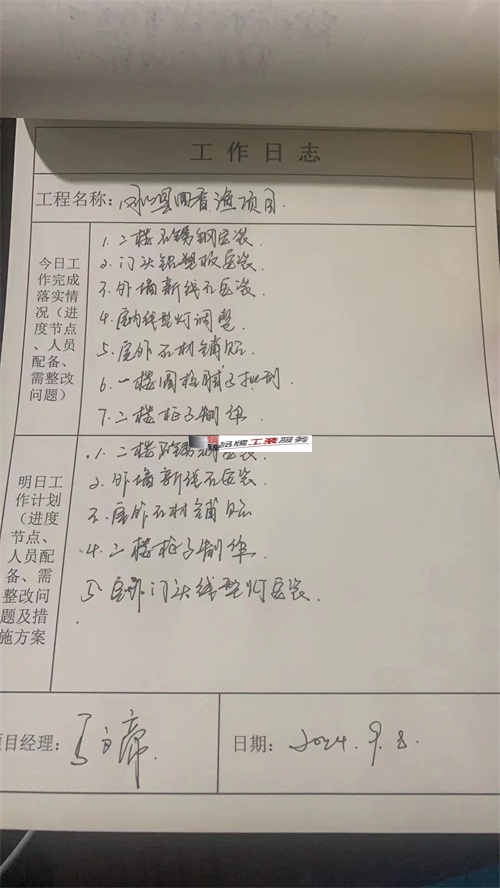 工作日志
工程名称：回香渔项目.
今日工
作完成
落实情
况（进
度节点
、人员
配备、
需整改
问题）
1. 二楼不锈钢安装.
2. 门头铝塑板安装.
3. 外墙新线石安装.
4. 室内线型灯调整
5. 屋外石材铺贴
6. 一楼圆柱腻子批刮.
7. 二楼柜子制作
品牌工装服务
明日工
作计划
（进度
节点、
人员配
备、需
整改问
题及措
施方案
1. 二楼不锈钢安装.
2. 外墙新线石安装.
3. 屋外石材铺贴
4. 二楼柜子制作.
5. 室外门头线型灯安装.
项目经理：
日期：2024.9.8.